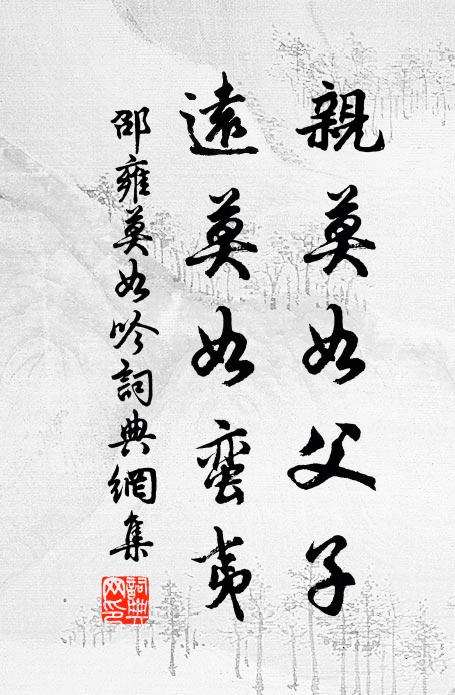 親莫如父子
遠莫如蛮夷
邵雍莫如吟詞典網集
詞典